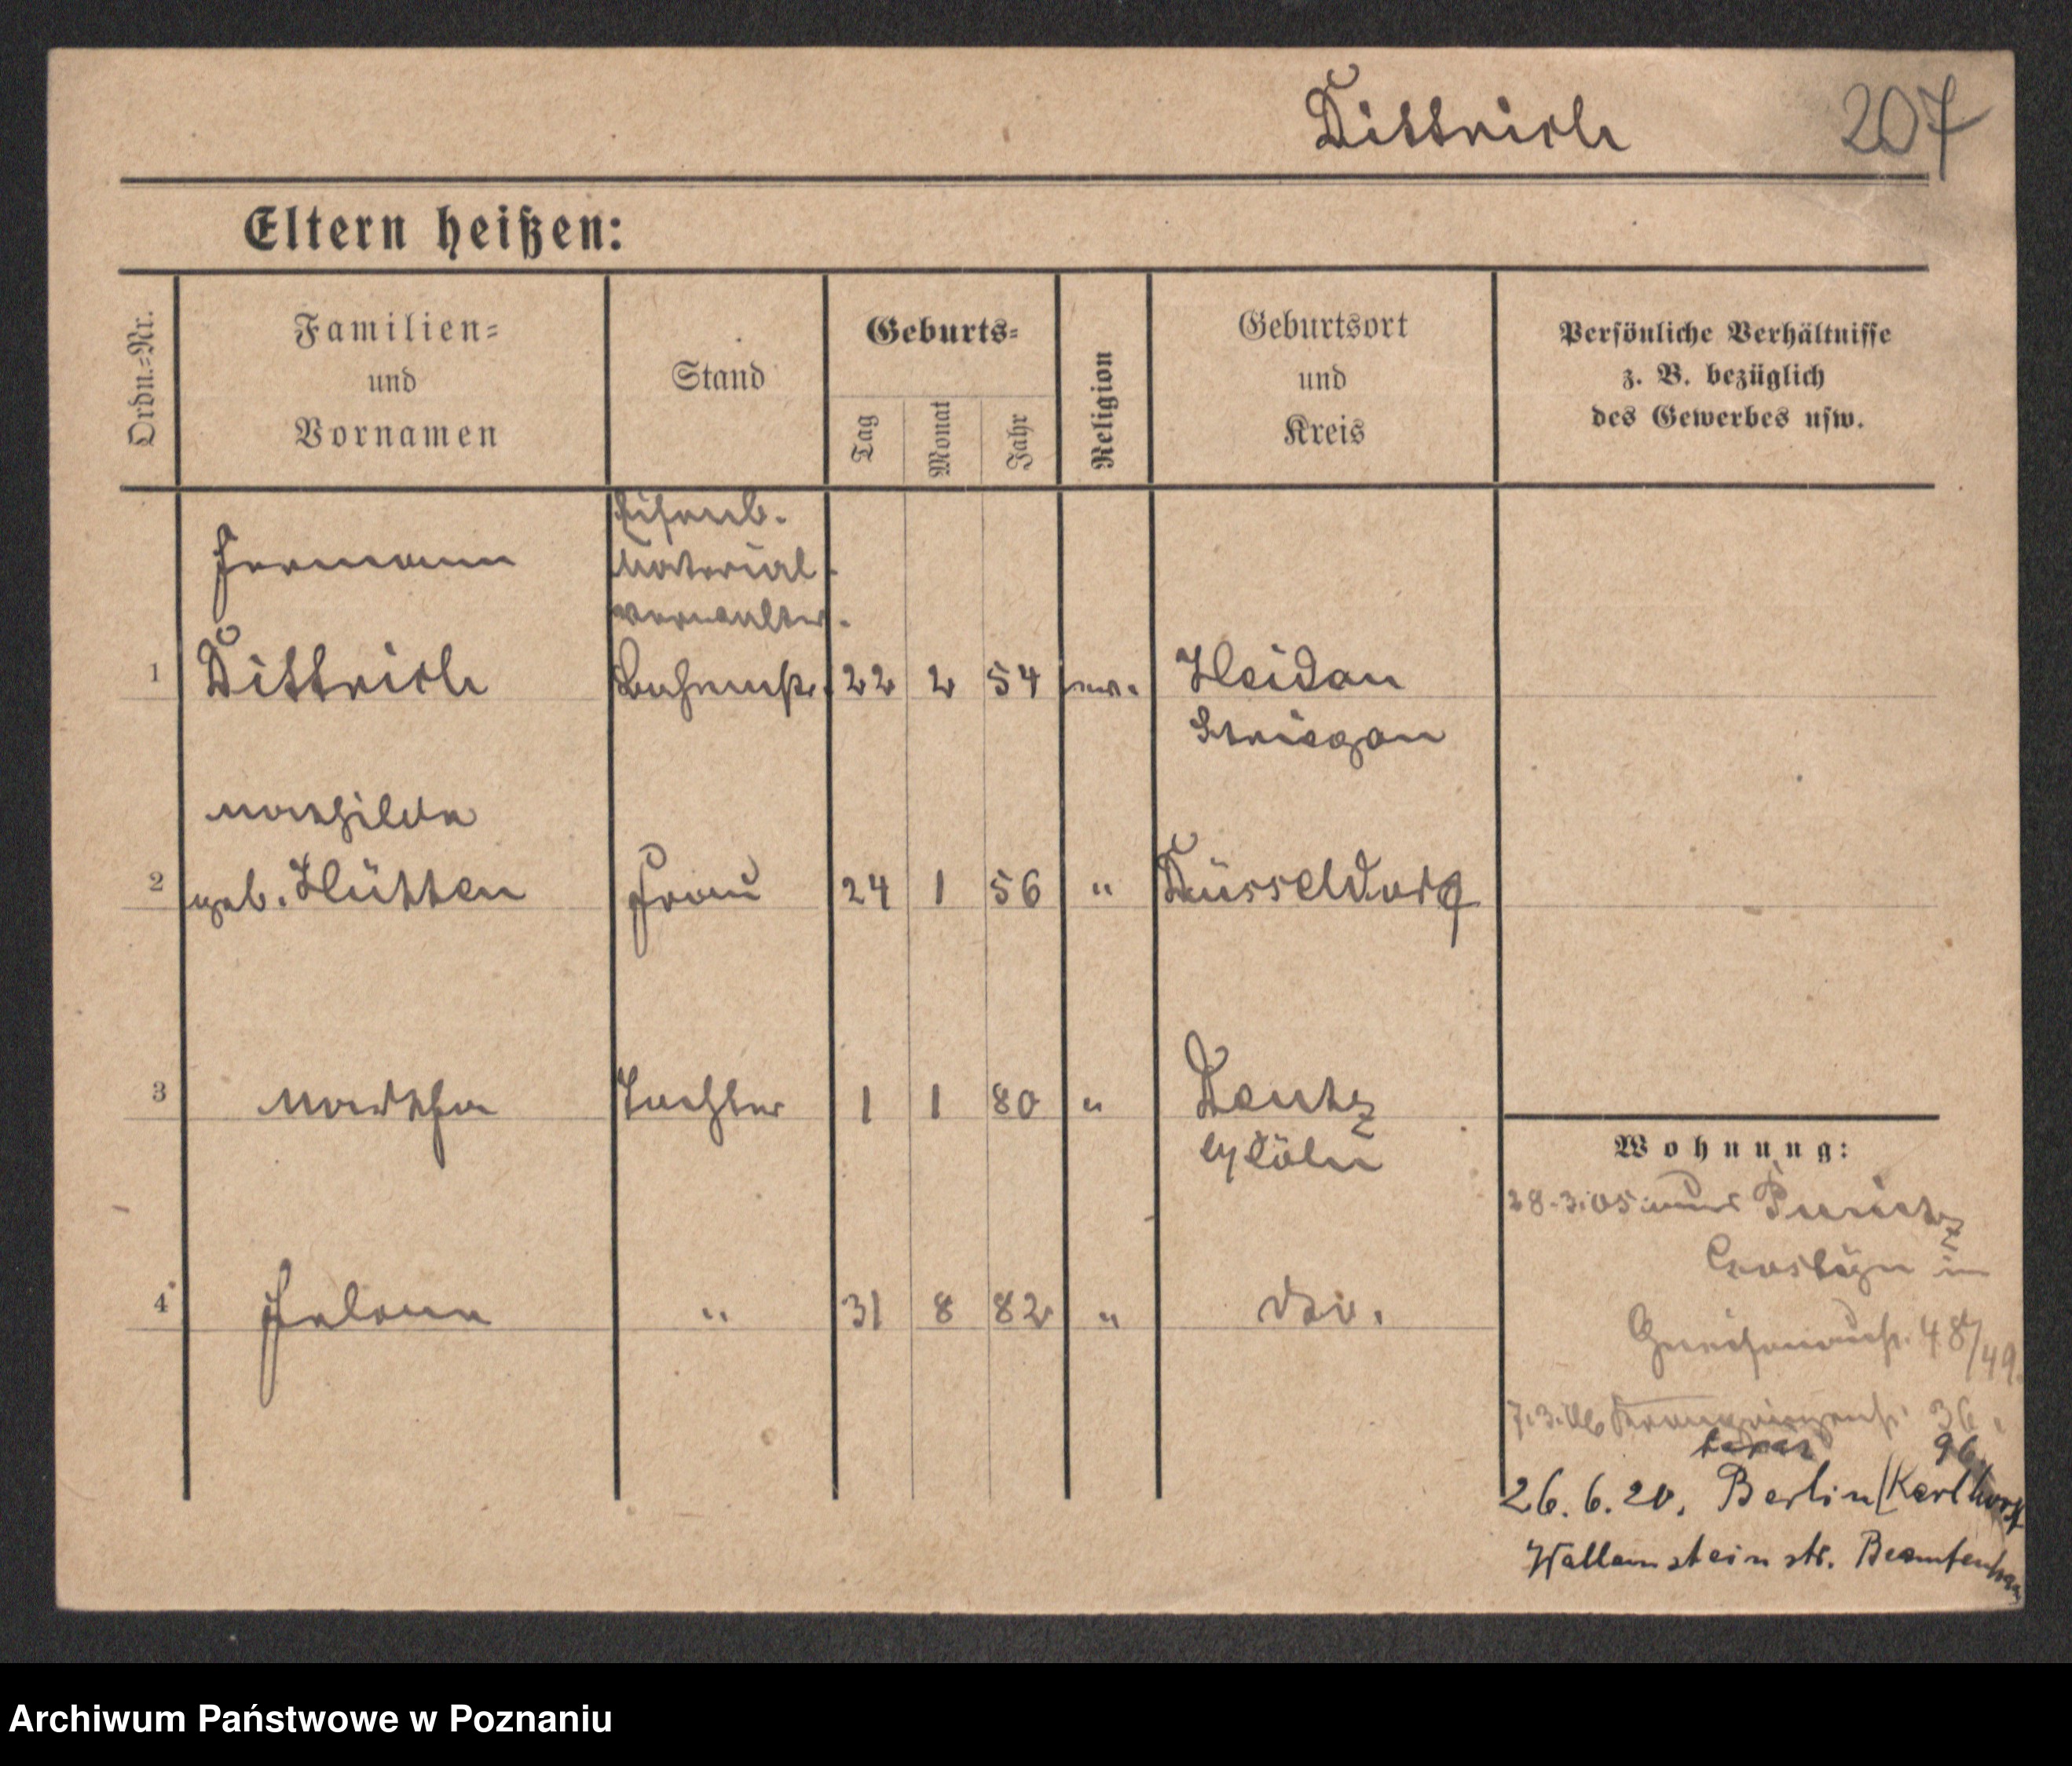 Dittrich 207
Eltern heißen:
Ordn.=Nr.
Familien=
und
Vornamen
Stand
Geburts=
Tag
Monat
Jahr
Religion
Geburtsort
und
Kreis
Persönliche Verhältnisse
z. B. bezüglich
des Gewerbes usw.
Eisenb.
Hermann
Material.
verwalter.
1 Dittrich 22 2 54 ev. Heidau
Striegau
Mathilde
2 geb. Hütten Frau 24 1 56 " Düsseldorf
3 Martha Tochter 1 1 80 " Deutz
Cöln
Wohnung:
28.3.05
in
4 Helene " 31 8 82 " do.
48/49.
7.3.06 36.
96
26.6.20. Berlin/Karlhorst
Wallensteinstr. Beamtenhaus
Archiwum Państwowe w Poznaniu